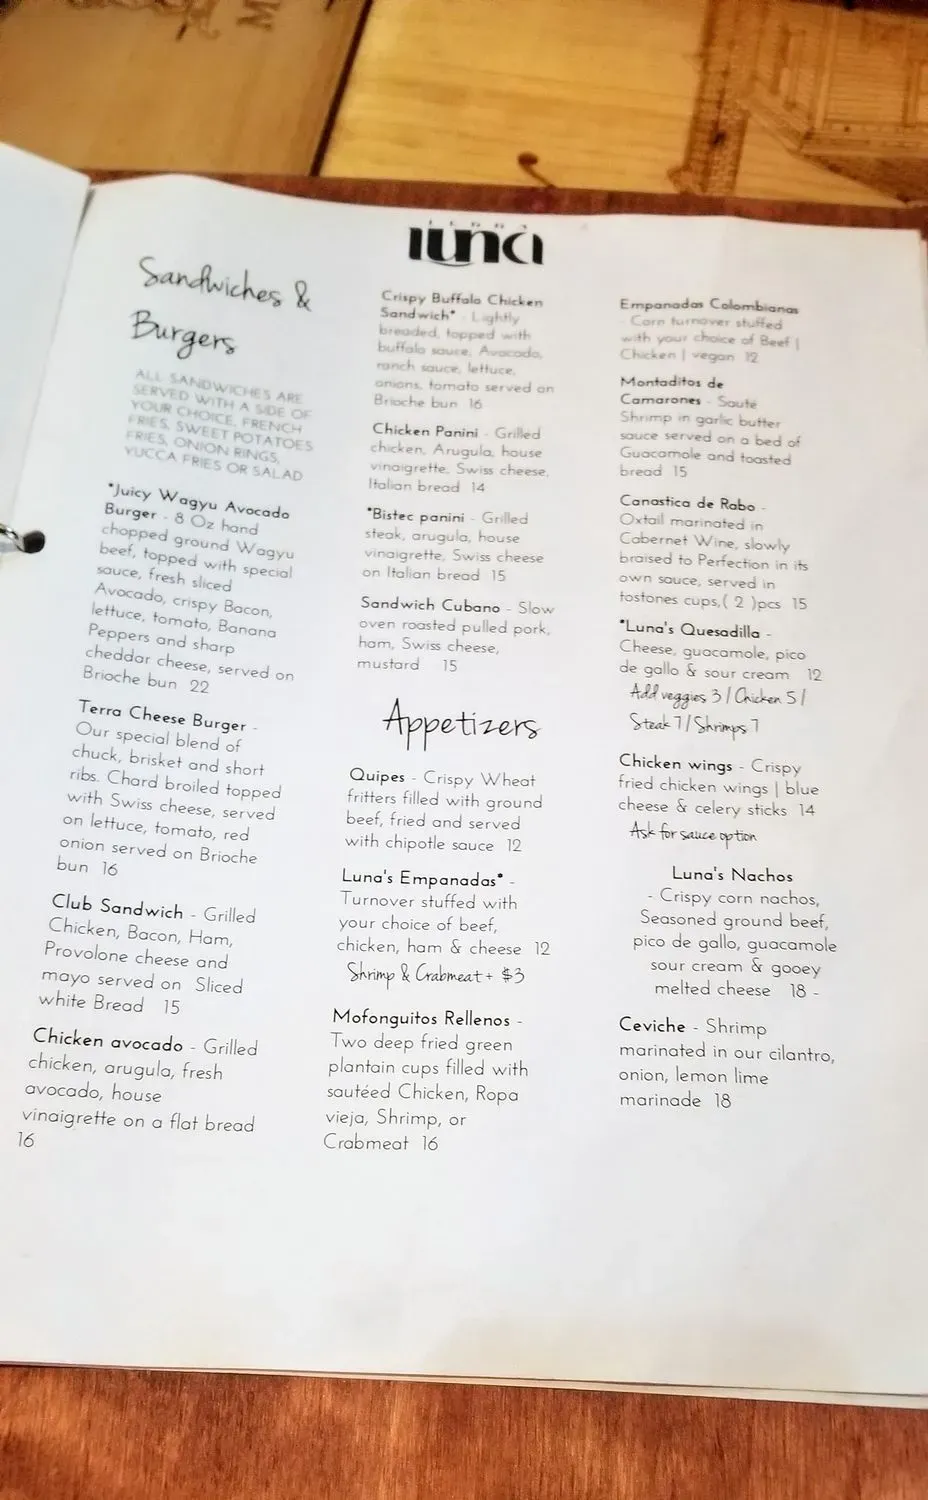 TERRA
luna
Sandwiches &
Burgers
ALL SANDWICHES ARE
SERVED WITH A SIDE OF
YOUR CHOICE, FRENCH
FRIES, SWEET POTATOES
FRIES, ONION RINGS,
YUCCA FRIES OR SALAD
*Juicy Wagyu Avocado
Burger - 8 Oz hand
chopped ground Wagyu
beef, topped with special
sauce, fresh sliced
Avocado, crispy Bacon,
lettuce, tomato, Banana
Peppers and sharp
cheddar cheese, served on
Brioche bun 22
Terra Cheese Burger -
Our special blend of
chuck, brisket and short
ribs. Chard broiled topped
with Swiss cheese, served
on lettuce, tomato, red
onion served on Brioche
bun 16
Club Sandwich - Grilled
Chicken, Bacon, Ham,
Provolone cheese and
mayo served on Sliced
white Bread 15
Chicken avocado - Grilled
chicken, arugula, fresh
avocado, house
vinaigrette on a flat bread
16
Crispy Buffalo Chicken
Sandwich* - Lightly
breaded, topped with
buffalo sauce, Avocado,
ranch sauce, lettuce,
onions, tomato served on
Brioche bun 16
Chicken Panini - Grilled
chicken, Arugula, house
vinaigrette, Swiss cheese,
Italian bread 14
*Bistec panini - Grilled
steak, arugula, house
vinaigrette, Swiss cheese
on Italian bread 15
Sandwich Cubano - Slow
oven roasted pulled pork,
ham, Swiss cheese,
mustard 15
Appetizers
Quipes - Crispy Wheat
fritters filled with ground
beef, fried and served
with chipotle sauce 12
Luna's Empanadas* -
Turnover stuffed with
your choice of beef,
chicken, ham & cheese 12
Shrimp & Crabmeat + $3
Mofonguitos Rellenos -
Two deep fried green
plantain cups filled with
sautéed Chicken, Ropa
vieja, Shrimp, or
Crabmeat 16
Empanadas Colombianas
- Corn turnover stuffed
with your choice of Beef |
Chicken | vegan 12
Montaditos de
Camarones - Sauté
Shrimp in garlic butter
sauce served on a bed of
Guacamole and toasted
bread 15
Canastica de Rabo -
Oxtail marinated in
Cabernet Wine, slowly
braised to Perfection in its
own sauce, served in
tostones cups,( 2 )pcs 15
*Luna's Quesadilla -
Cheese, guacamole, pico
de gallo & sour cream 12
Add veggies 3 | Chicken 5 |
Steak 7 | Shrimps 7
Chicken wings - Crispy
fried chicken wings | blue
cheese & celery sticks 14
Ask for sauce option
Luna's Nachos
- Crispy corn nachos,
Seasoned ground beef,
pico de gallo, guacamole
sour cream & gooey
melted cheese 18 -
Ceviche - Shrimp
marinated in our cilantro,
onion, lemon lime
marinade 18